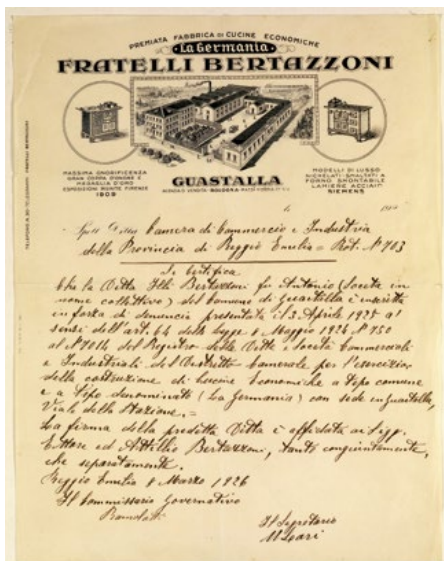 PREMIATA FABBRICA DI CUCINE ECONOMICHE
"La Germania"
FRATELLI BERTAZZONI
GUASTALLA
MASSIMA ONORIFICENZA
GRAN COPPA D'ONORE E
MEDAGLIA D'ORO
ESPOSIZIONI RIUNITE FIRENZE
1909
MODELLI DI LUSSO
NICHELATI-SMALTATI A
FORNO SMONTABILE
LAMIERE ACCIAIO
SIEMENS
Camera di Commercio e Industria
della Provincia di Reggio Emilia = Rot. N° 703
Si Certifica
che la Ditta Flli Bertazzoni fu Antonio (Società in
nome collettivo) del Comune di Guastalla è inscritta
in forza di denuncia presentata il 3 Aprile 1925 a'
sensi dell'art. 64 della legge 8 Maggio 1924 N° 750
al N° 7014 del Registro delle Ditte e Società Commerciali
e Industriali del Distretto Camerale per l'esercizio
della costruzione di Cucine Economiche a tipo comune
e a tipo denominati (La Germania) con sede in Guastalla,
Viale della Stazione. =
La firma della predetta Ditta è affidata ai Sigg.
Ettore ed Attilio Bertazzoni, tanto congiuntamente,
che separatamente.
Reggio Emilia 8 Marzo 1926
Il Commissario Governativo
Il Segretario